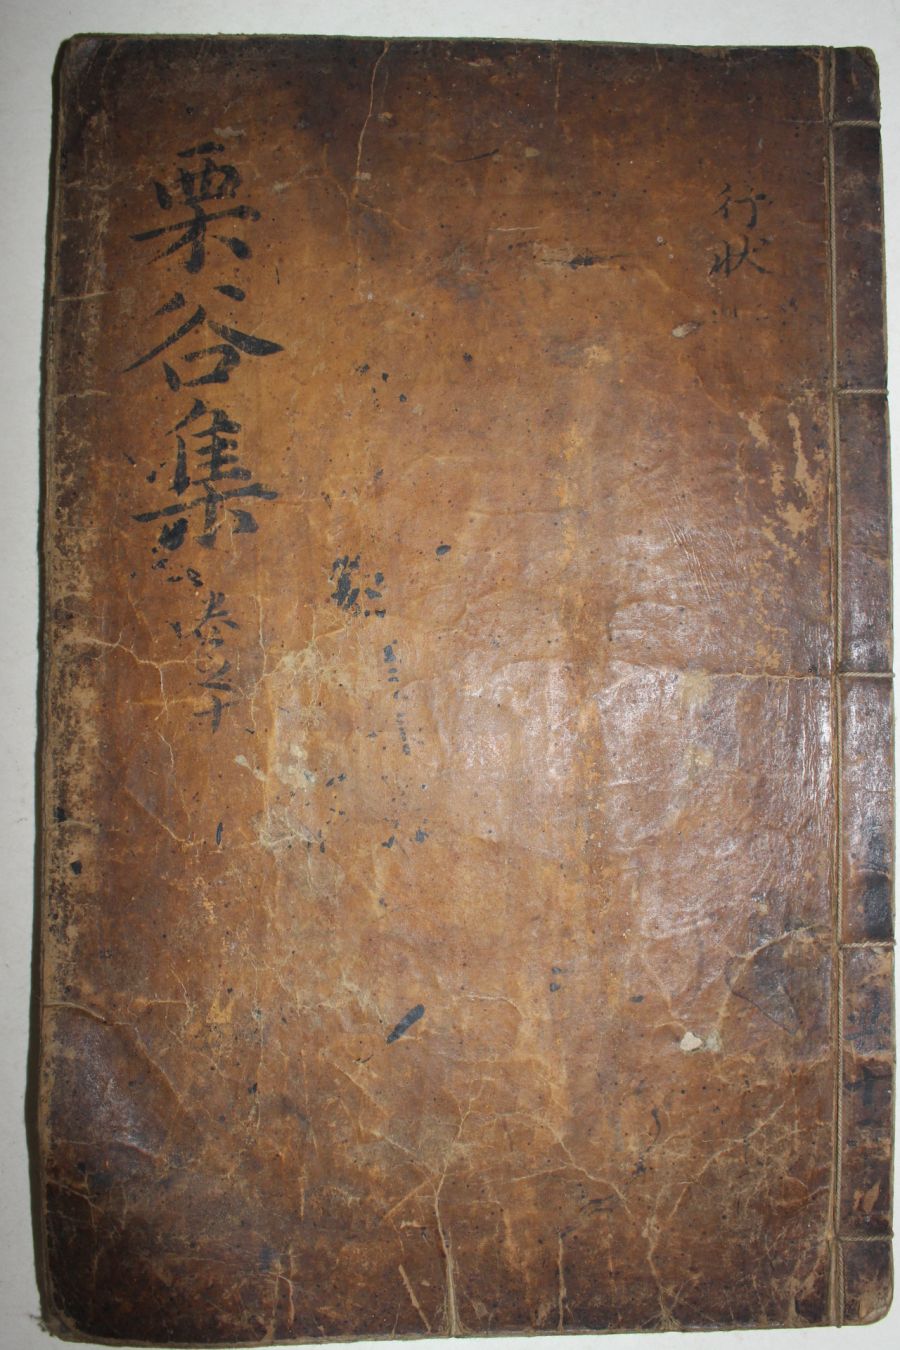 行狀
栗谷集
卷之十